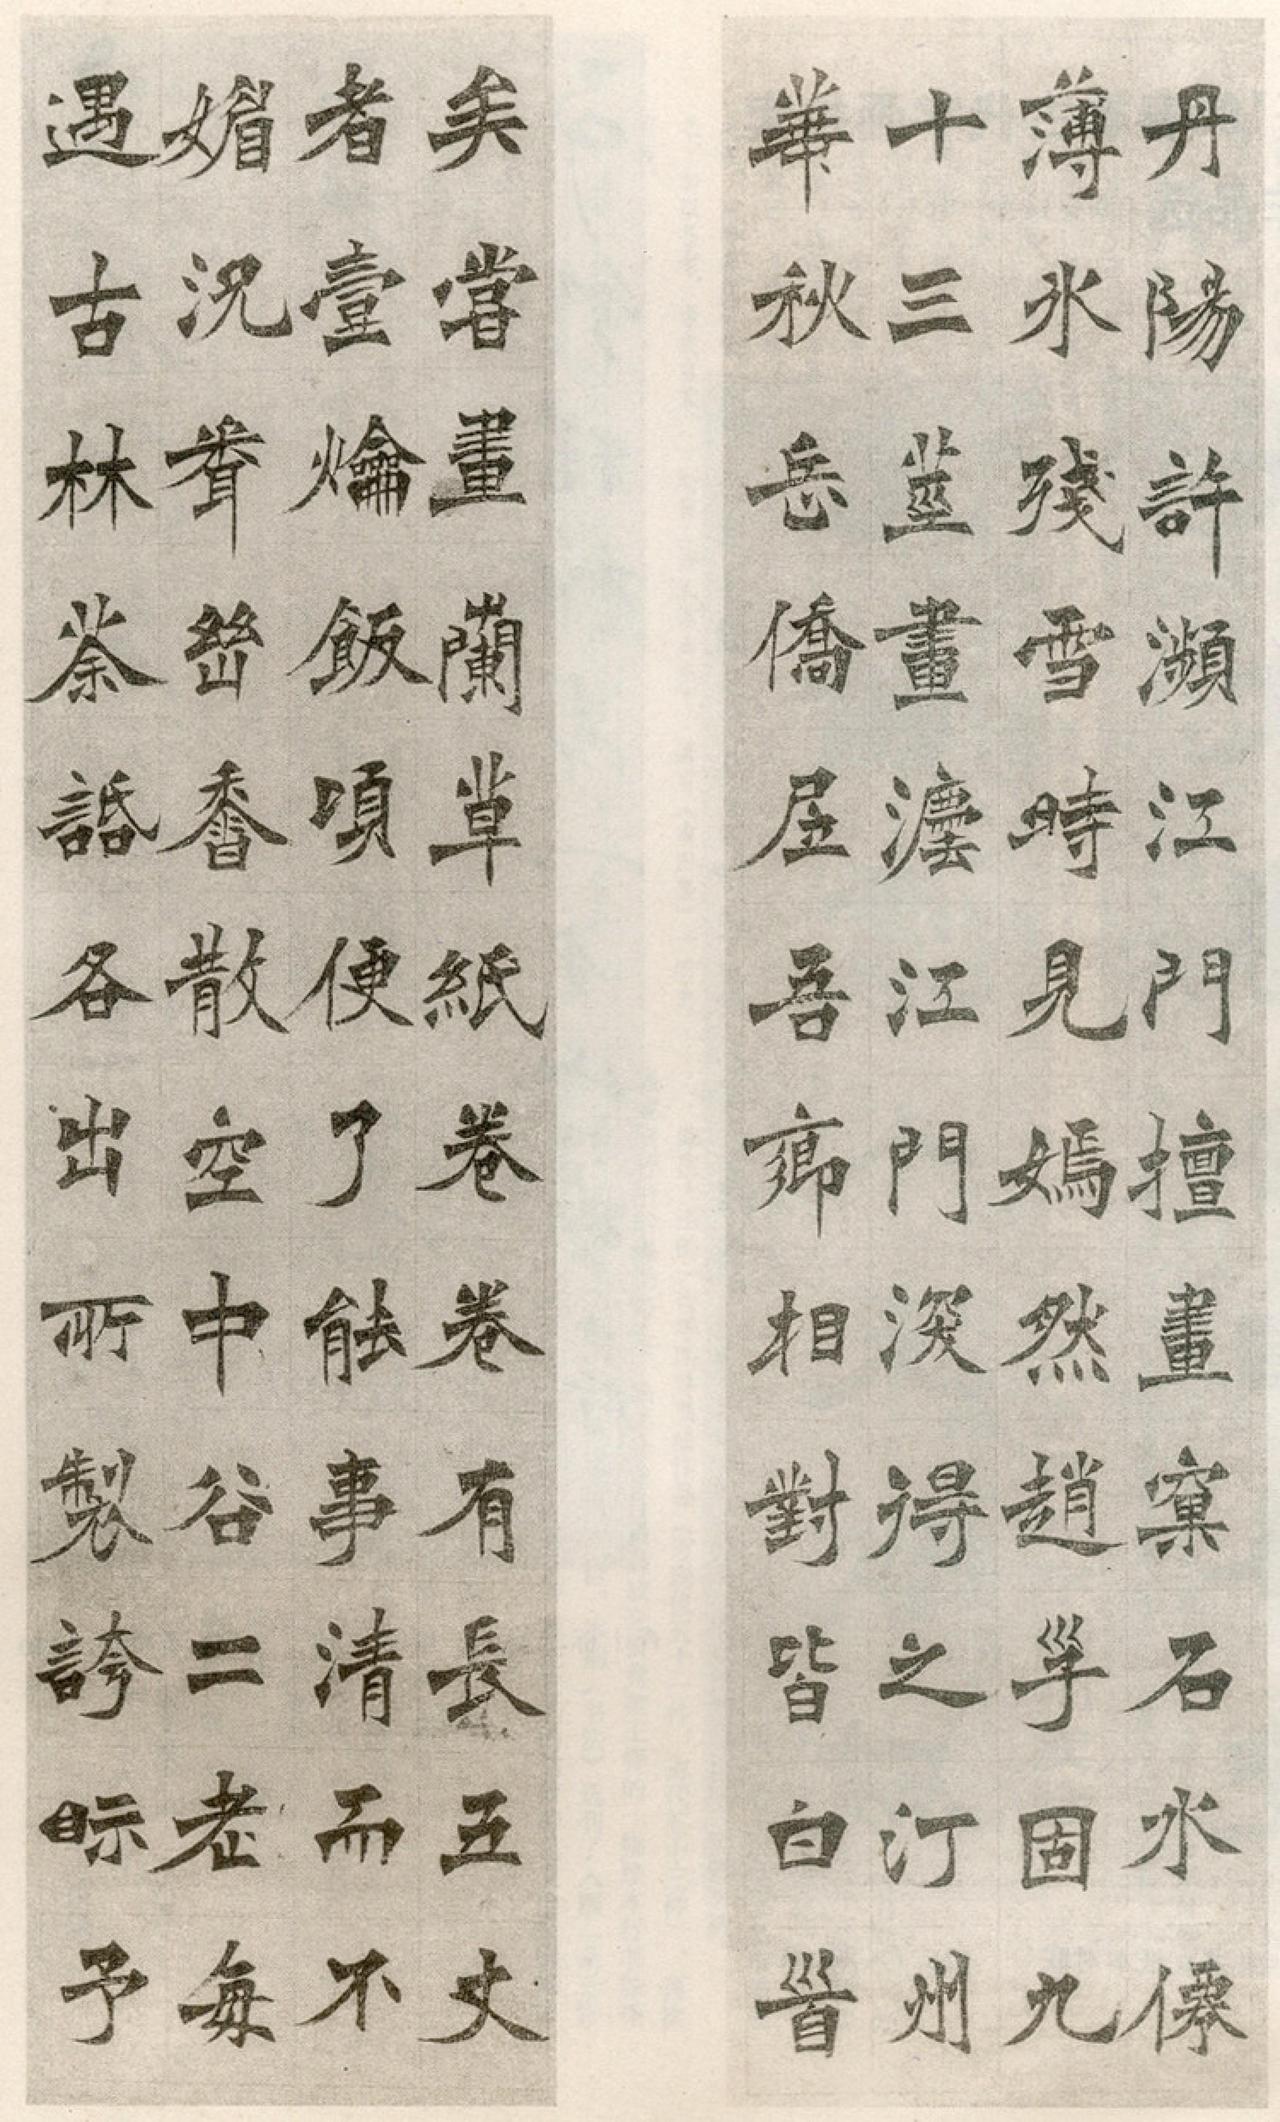 丹陽許瀕江門擅畫窠石水僊
薄氷殘雪時見嫣然趙㜽固九
十三莖畫灋江門深得之汀州
華秋岳僑居吾鄉相對皆白𩠐
矣嘗畫蘭草紙卷卷有長五丈
者壹爚飯頃便了能事清而不
媚況䎽幽香散空中谷二老每
遇古林荼話各出所製誇眎予